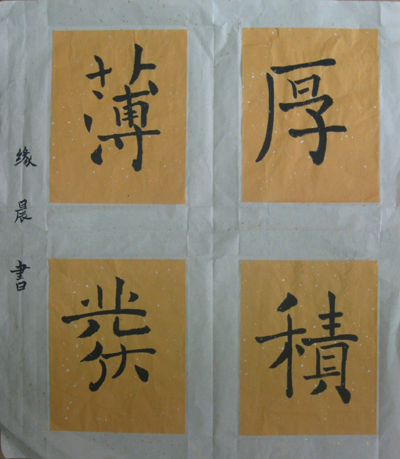 厚積
薄發
缘晨書